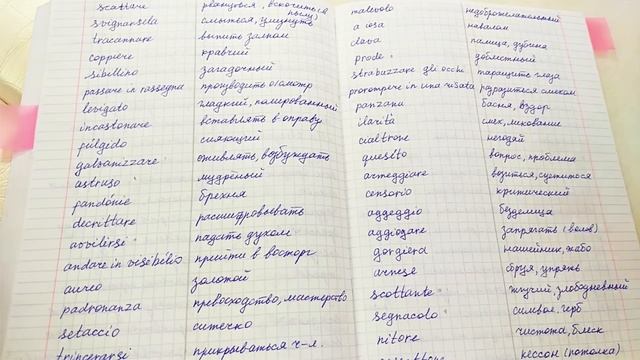 scattare рвануться, вскочить (в
svignarsela смыться, улизнуть
tracannare выпить залпом
coppiere кравчий
sibillino загадочный
passare in rassegna производить осмотр
levigato гладкий, полированный
incastonare вставлять в оправу
fulgido сияющий
galvanizzare оживлять, возбуждать
astruso мудрёный
fandonie брехня
decrittare расшифровывать
avvilirsi падать духом
andare in visibilio прийти в восторг
aureo золотой
padronanza превосходство, мастерство
setaccio ситечко
trincerarsi прикрываться ч-л.
malevolo недоброжелательный
a iosa навалом
clava палица, дубина
prode доблестный
strabuzzare gli occhi таращить глаза
prorompere in una risata разразиться смехом
panzana басня, вздор
ilarità смех, ликование
cialtrone негодяй
quesito вопрос, проблема
armeggiare возиться, суетиться
censorio критический
aggeggio безделица
aggiogare запрягать (волов)
gorgiera нашейник, жабо
arnese сбруя, упряжь
scottante жгучий, злободневный
segnacolo символ, герб
nitore чистота, блеск
кессон (потолка)